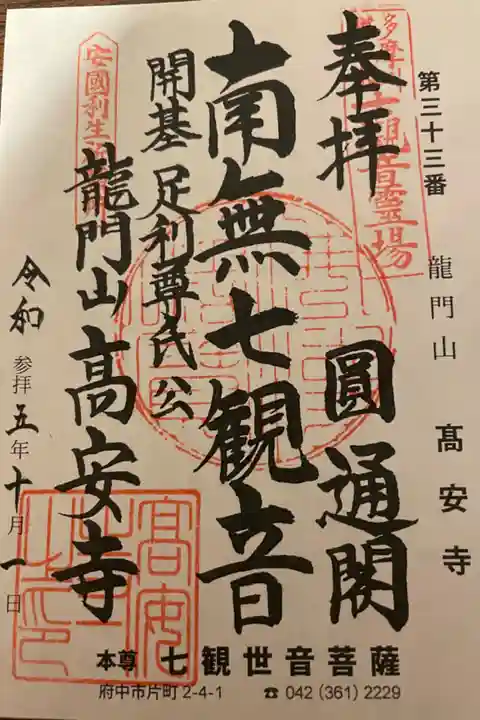 第三十三番
龍門山
髙安寺
奉拝
圓通閣
南無七観音
開基 足利尊氏公
龍門山高安寺
令和
参拝五年十月一日
安國利生
観音霊場
本尊 七観世音菩薩
府中市片町2-4-1 ☎ 042 (361) 2229